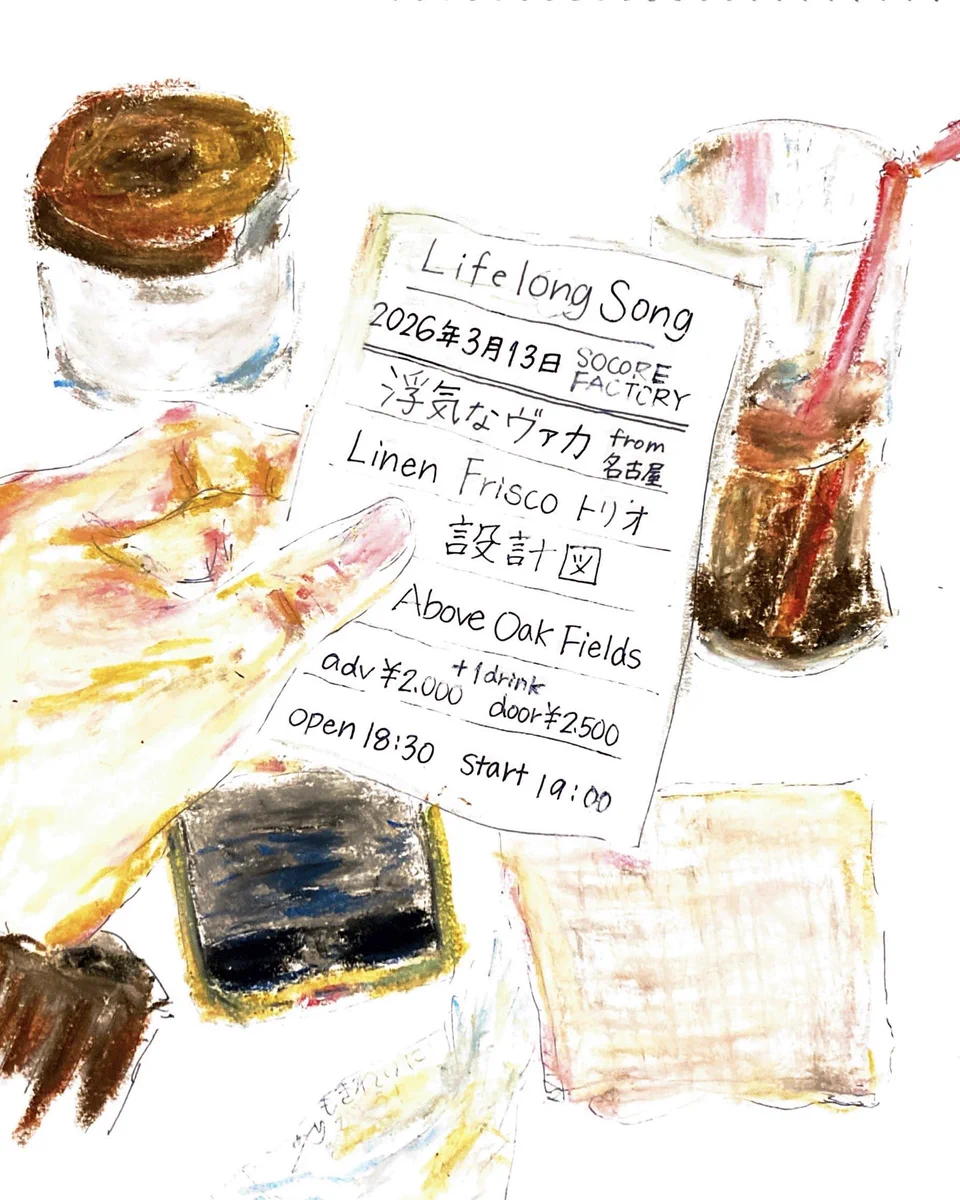 Lifelong Song
2026年3月13日 SOCORE FACTORY
浮気なヴァカ from 名古屋
Linen Frisco トリオ
設計図
Above Oak Fields
+1drink
adv ¥2.000 door ¥2.500
open 18:30 start 19:00